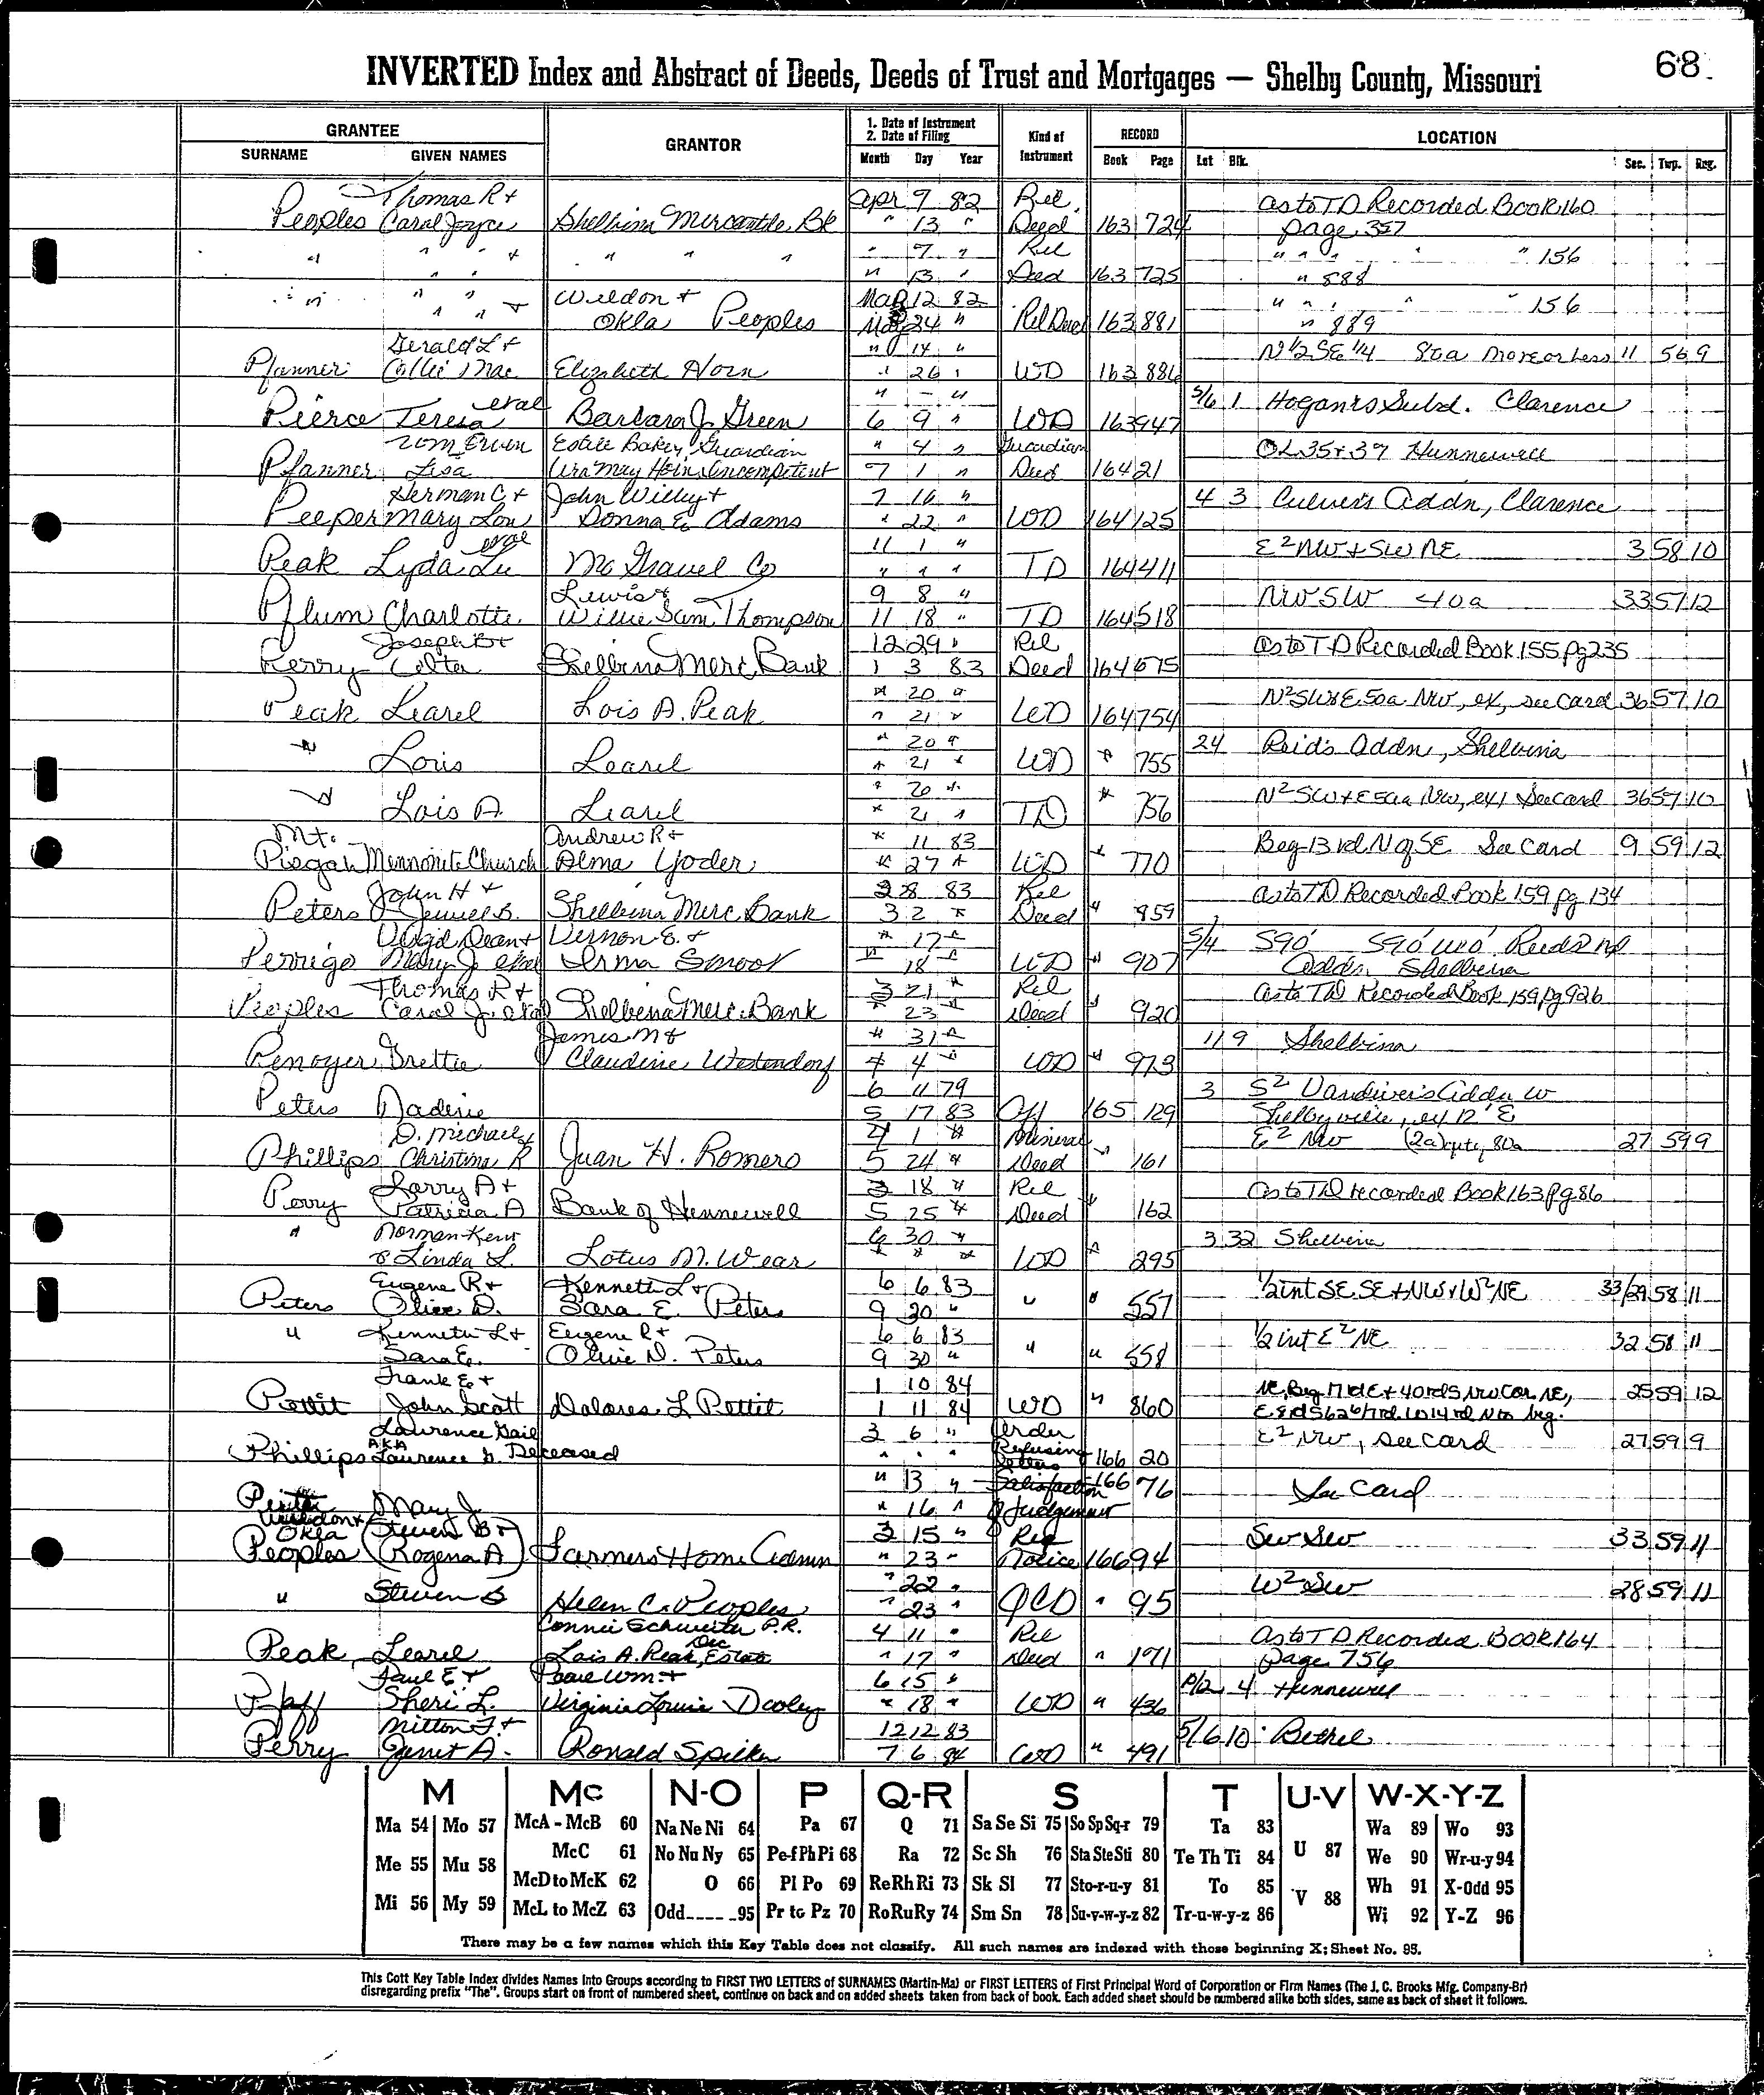 68
INVERTED Index and Abstract of Deeds, Deeds of Trust and Mortgages — Shelby County, Missouri
GRANTEE
SURNAME GIVEN NAMES
GRANTOR
1. Date of Instrument
2. Date of Filing
Month Day Year
Kind of Instrument
RECORD
Book Page
LOCATION
Lot Blk. Sec. Twp. Rng.
Thomas R + Apr 9 82 Rel. as to TD Recorded Book 160
Peoples Carol Joyce Shelbina Mercantile Bk " 13 " Deed 163 724 page 357
" " " + " " " " 7 " Rel " " " " 156
" " " " 13 " Deed 163 725 " 588
" " " Weldon + Mar 12 82 " " " " 156
" " " + Okla Peoples 24 " Rel Deed 163 881 " 889
Gerald L + " 14 " N 1/2 SE 1/4 80a more or less 11 56 9
Pfanner Collie Mae Elizabeth Horn " 26 " WD 163 886
etal " - " 5/6 1 Hogan's Subd. Clarence
Pierce Teresa Barbara J. Green 6 9 " WD 163 947
Wm Ervin Estele Baker, Guardian " 4 " Guardian OL 35 + 37 Hunnewell
Pfanner Lisa Ura May Horn, incompetent 7 1 " Deed 164 21
Herman C. + John Willy + 7 16 " 4 3 Culver's Addn, Clarence
Peeper Mary Lou Donna E. Adams " 22 " WD 164 125
etal 11 1 " E2 NW + SW NE 3 58 10
Peak Lyda Lu Mc Gravel Co " " " TD 164 411
Lewis + 9 8 " NW SW 40a 33 57 12
Pflum Charlotte Willie Sam Thompson 11 18 " TD 164 518
Joseph B + 12 29 " Rel as to TD Recorded Book 155 pg 235
Perry Celta Shelbina Merc Bank 1 3 83 Deed 164 675
" 20 " N2 SW + E 50a NW, ex, see card 36 57 10
Peak Learel Lois A. Peak " 21 " WD 164 754
" 20 " 24 Reid's Addn, Shelbina
" Lois Learel " 21 " WD " 755
" 20 " N2 SW + E 50a NW, ex, See card 36 57 10
" Lois A. Learel " 21 " TD " 756
Mt. Andrew R + " 11 83 Beg 13 rd N of SE See Card 9 59 12
Pisgah Mennonite Church Alma Yoder " 27 " WD " 770
John H + 2 8 83 Rel as to TD Recorded Book 159 pg 134
Peters Jewell B. Shelbina Merc. Bank 3 2 " Deed " 859
Virgil Dean + Vernon E. + " 17 " 5/4 S90' S90' W10' Reids 2nd
Perrigo Mary J. etal Irma Smoot " 18 " WD " 907 Addn. Shelbina
Thomas R + 3 21 " Rel as to TD Recorded Book 159 pg 926
Peoples Carol J. etal Shelbina Merc. Bank " 23 " Deed " 920
James M + " 31 " 11 9 Shelbina
Penoyer Grettie Claudine Westendorf 4 4 " WD " 973
6 11 79 3 S2 Vandiver's Addn W
Peters Nadine 5 17 83 Aff 165 129 Shelbyville, ex 12' E
D. Michael + 4 1 " Mineral E2 NW (2a) 80a 27 59 9
Phillips Christina R Juan H. Romero 5 24 " Deed " 161
Larry A + 3 18 " Rel as to TD recorded Book 163 pg 86
Perry Patricia A Bank of Hunnewell 5 25 " Deed " 162
" Norman Kent 6 30 " 3 32 Shelbina
& Linda L. Lotus M. Wear " " " WD " 295
Eugene R + Kenneth L + 6 6 83 1/2 int SE SE + NW + W2 NE 33/29 58 11
Peters Olive D. Sara E. Peters 9 30 " " " 557
" Kenneth L + Eugene R + 6 6 83 1/2 int E2 NE 32 58 11
Sara E. Olive D. Peters 9 30 " " " 558
Frank E + 1 10 84 NE, Beg 17 rd E + 40 rd S NW Cor NE, 25 59 12
Pettit John Scott Dolores L Pettit 1 11 84 WD " 860 to beg.
Lawrence Gail 3 6 " Order E2 NW, see card 27 59 9
Phillips AKA Laurence G. Deceased " " " Refusing Letters 166 20
" 13 " Satisfaction 166 76 See Card
Mary J. " 16 " of Judgement
Weldon + Okla (Steven B + 3 15 " Req SW SW 33 59 11
Peoples Rogena A) Farmers Home Admin " 23 " Notice 166 94
" 22 " W2 SW 28 59 11
" Steven B Helen C. Peoples " 23 " QCD " 95
Connie Schwerter P.R. 4 11 " Rel As to TD Recorded Book 164
Peak, Learel Lois A. Peak, Dec Estate " 17 " Deed " 171 page 756
Paul E + Wm + 6 15 " P/2 4 Hunnewell
Pfaff Sheri L. Virginia Louise Dooley " 18 " WD " 436
Milton F. + 12 12 83 5/6 10 Bethel
Perry Janet A. Ronald Spilker 7 6 84 WD " 491
M Mc N-O P Q-R S T U-V W-X-Y-Z
Ma 54 Mo 57 McA - McB 60 Na Ne Ni 64 Pa 67 Q 71 Sa Se Si 75 So Sp Sq-r 79 Ta 83 U 87 Wa 89 Wo 93
Me 55 Mu 58 McC 61 No Nu Ny 65 Pe-f Ph Pi 68 Ra 72 Sc Sh 76 Sta Ste Sti 80 Te Th Ti 84 We 90 Wr-u-y 94
McD to McK 62 O 66 Pl Po 69 Re Rh Ri 73 Sk Sl 77 Sto-r-u-y 81 To 85 V 88 Wh 91 X-Odd 95
Mi 56 My 59 McL to McZ 63 Odd 95 Pr to Pz 70 Ro Ru Ry 74 Sm Sn 78 Su-v-w-y-z 82 Tr-u-w-y-z 86 Wi 92 Y-Z 96
There may be a few names which this Key Table does not classify. All such names are indexed with those beginning X; Sheet No. 95.
This Cott Key Table Index divides Names Into Groups according to FIRST TWO LETTERS of SURNAMES (Martin-Ma) or FIRST LETTERS of First Principal Word of Corporation or Firm Names (The J. C. Brooks Mfg. Company-Br)
disregarding prefix "The". Groups start on front of numbered sheet, continue on back and on added sheets taken from back of book. Each added sheet should be numbered alike both sides, same as back of sheet it follows.